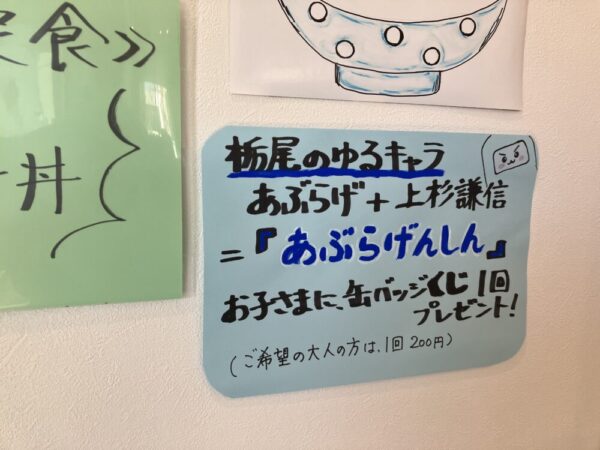 定食》
丼
栃尾のゆるキャラ
あぶらげ+上杉謙信
=『あぶらげんしん』
お子さまに、缶バッジくじ1回
プレゼント!
(ご希望の大人の方は、1回200円)